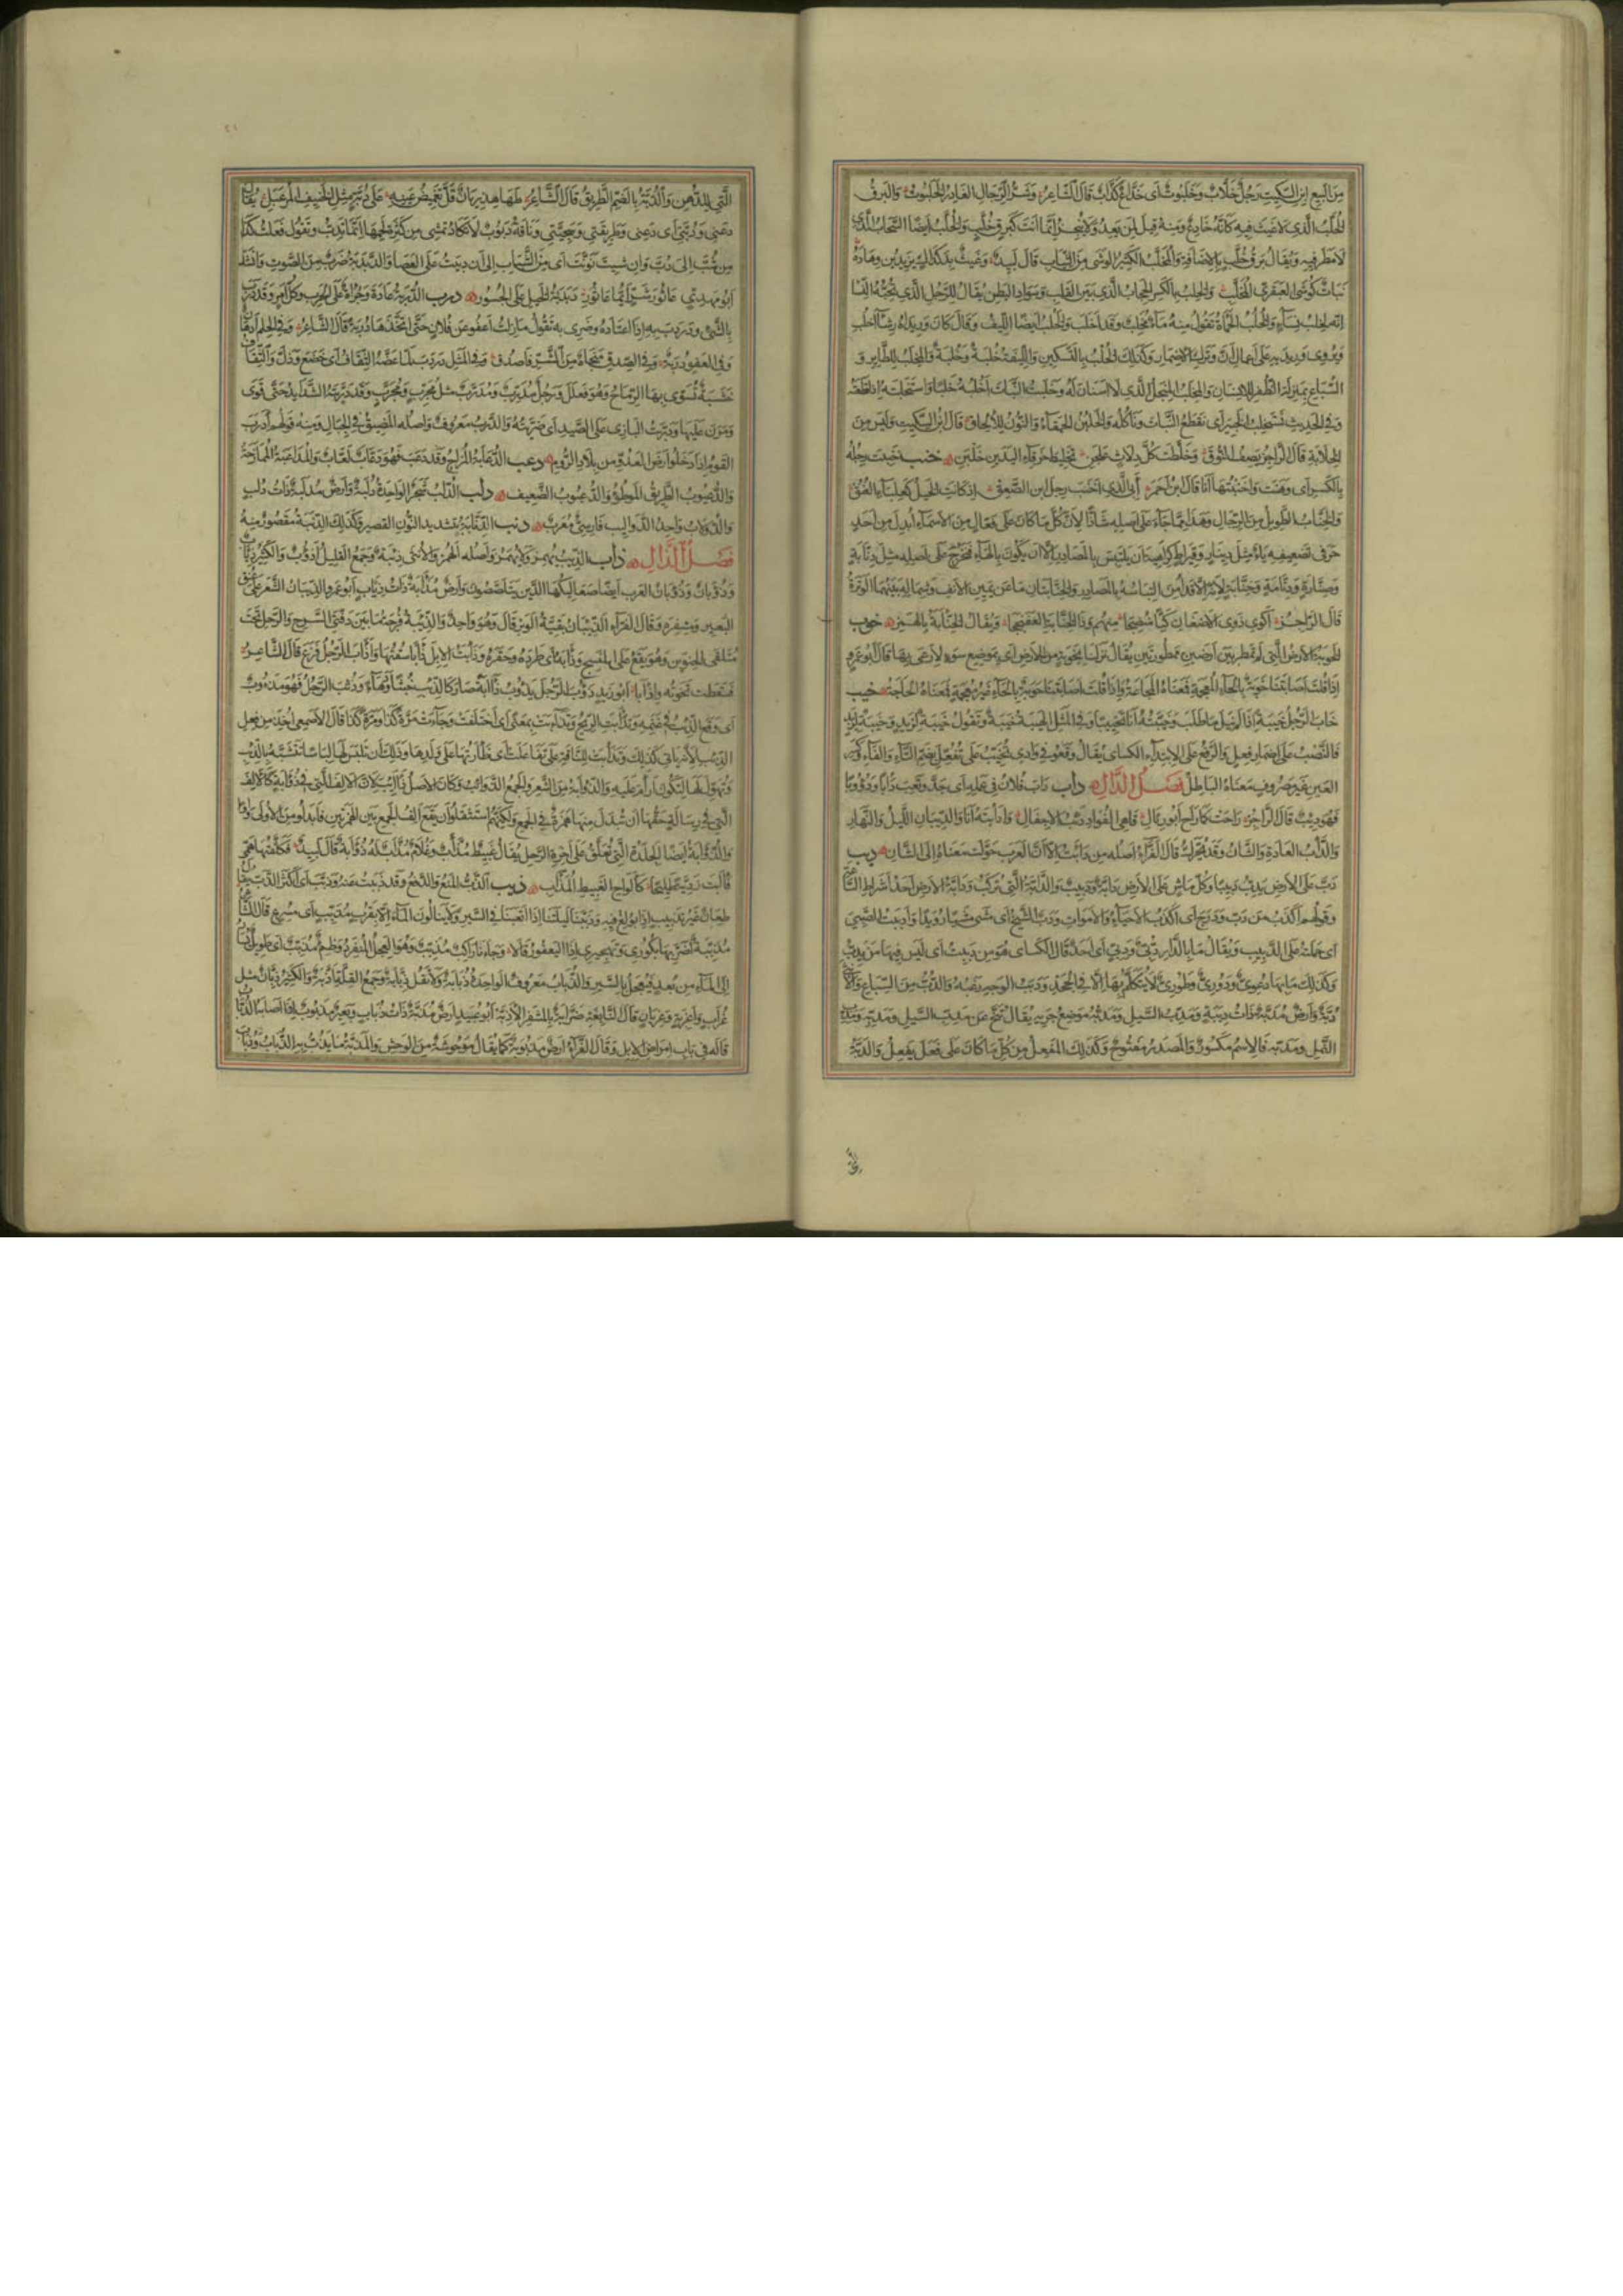 من البيع ابن السكيت رجل خلاب وخلبوت اى خداع كذاب قال الشاعر وشر الرجال الغادر الخلبوت والبرق
الخلب الذى لا غيث فيه كانه خادع ومنه قيل لمن يعد ولا ينجز انما انت كبرق خلب والخلب ايضا السحاب الذى
لا مطر فيه ويقال برق خلب بالاضافة والمخلب الكثير الوشى من الثياب قال لبيد وغيث بدكداك يزين وهاده
نبات كوشى العبقرى المخلب والخلب بالكسر الحجاب الذى بين القلب وسواد البطن يقال للرجل الذى تحبه النسا
انه لخلب نساء والخلب الحمأة تقول منه ماء مخلب وقد اخلب والخلب ايضا الليف وقال كان وريداه رشاآ خلب
ويروى وريديه على اعمال كأن وترك الاضمار وكذلك الخلب بالتسكين والليفة خلبة وخلبة والمخلب للطاير و
السباع بمنزلة الظفر للانسان والمخلب المنجل الذى لا اسنان له وخلبت النبات اخلبه خلبا واستخلبته اذا قطعته
وفى الحديث نستخلب الخبير اى نقطع النبات وناكله والخلبن الحمقاء والنون للالحاق قال ابن السكيت وليس من
الخلابة قال الراجز يصف النوق وخلطت كل دلاث علجن تخليط خرقاء اليدين خلبن خنب خنبت رجله
بالكسر اى وهنت واخنبتها انا قال ابن احمر ابى الذى اخنب رجل ابن الصعق اذ كانت الخيل كعلباء العنق
والخناب الطويل من الرجال وهذا مما جاء على اصله شاذا لان كل ما كان على فعال من الاسماء ابدل من احد
حرفى تضعيفه ياء مثل دينار وقيراط كراهية ان يلتبس بالمصادر الا ان يكون بالهاء فيخرج على اصله مثل دنابة
وصنارة ودنامة وخنابة لانه الآن قد امن التباسه بالمصادر والخنابتان ما عن يمين الانف وشماله بينهما الوترة
قال الراجز اكوى ذوى الاضغان كيا منضجا منهم وذا الخنابة العفنججا ويقال الخنابة بالهمز خوب
الخوبة الارض التى لم تمطر بين ارضين ممطورتين يقال نزلنا بخوبة من الارض اى بموضع سوء لا رعى بها قال ابو عمرو
اذا قلت اصابتنا خوبة بالخاء المعجمة فمعناه المجاعة واذا قلت اصابتنا حوبة بالحاء غير معجمة فمعناه الحاجة خيب
خاب الرجل خيبة اذا لم ينل ما طلب وخيبته انا تخييبا وفى المثل الهيبة خيبة وتقول خيبة لزيد وخيبة لزيد
فالنصب على اضمار فعل والرفع على الابتداء الكساى يقال وقعوا فى وادى تخيب على تفعل بضم التاء والفاء وكسر
العين غير مصروف معناه الباطل فصل الدال داب داب فلان فى عمله اى جد وتعب دأبا ودؤوبا
فهو دئب قال الراجز راحت كما راح ابو رئال قاهى الفؤاد دئب الاجفال وادأبته انا والدايبان الليل والنهار
والدأب العادة والشان وقد يحرك قال الفراء اصله من دابت الا ان العرب حولت معناه الى الشان دبب
دب على الارض يدب دبيبا وكل ماش على الارض دابة ودبيب والدابة التى تركب ودابة الارض احد اشراط الساعة
وقولهم اكذب من دب ودرج اى اكذب الاحياء والاموات ودب الشيخ اى مشى مشيا رويدا وادببت الصبى
اى حملته على الدبيب ويقال ما بالدار دبى ودبى اى احد قال الكساى هو من دببت اى ليس فيها من يدب
وكذلك ما بها دعوى ودورى وطورى لا يتكلم بها الا فى الجحد ودبب الوجه زغبه والدب من السباع والانثى
دبة وارض مدبة ذات دببة ومدب السيل ومدبه موضع جريه يقال تنح عن مدب السيل ومدبه ومدب
النمل ومدبه فالاسم مكسور والمصدر مفتوح وكذلك المفعل من كل ما كان على فعل يفعل والدبة
التى
التى للدهن والدبة بالضم الطريق قال الشاعر طها هذريان قل تغميض عينه على دبة مثل الخنيف المرعبل يقال
دعنى ودبتى اى دعنى وطريقتى وسجيتى وناقة دبوب لا تكاد تمشى من كثرة لحمها انما تدب وتقول فعلت كذا
من شب الى دب وان شيت نونت اى من الشباب الى ان دببت على العصا والدبدبة ضرب من الصوت وانشد
ابو مهدى عاثور شر ايما عاثور دبدبة الخيل على الجسور درب الدربة عادة وجراة على الحرب وكل امر وقد درب
بالشى ودردب به اذا اعتاده وضرى به تقول ما زلت اعفو عن فلان حتى اتخذها دربة قال الشاعر وفى الحلم ادهان
وفى العفو دربة وفى الصدق منجاة من الشر فاصدق وفى المثل دردب لما عضه الثقاف اى خضع وذل والثقاف
خشبة تسوى بها الرماح وهو فعلل ورجل مدرب ومدرب مثل مجرب ومجرب وقد دربته الشدايد حتى قوى
ومرن عليها ودربت البازى على الصيد اى ضريته والدرب معروف واصله المضيق فى الجبال ومنه قولهم ادرب
القوم اذا دخلوا ارض العدو من بلاد الروم دعب الدعابة المزاح وقد دعب فهو دعاب لعاب والمداعبة الممازحة
والدعبوب الطريق الموطوء والدعبوب الضعيف دلب الدلب شجر الواحدة دلبة وارض مدلبة ذات دلب
والدولاب واحد الدواليب فارسى معرب دنب الدنابة بتشديد النون القصير وكذلك الدنبة مقصور منه
فصل الذال ذاب الذيب يهمز ولا يهمز واصله الهمز والانثى ذئبة وجمع القليل اذؤب والكثير ذئاب
وذؤبان وذؤبان العرب ايضا صعاليكها الذين يتلصصون وارض مذأبة ذات ذياب ابو عمرو الذيبان الشعر على عنق
البعير ومشفره وقال الفراء الذيبان بقية الوبر قال وهو واحد والذيبة فرجة ما بين دفتى السرج والرحل تحت
ملتقى الحنوين وهو يقع على المنسج وذأبه اى طرده وحقره وذأبت الابل ذأبا سقتها واذأب الرجل فزع قال الشاعر
فسقطت نخوته واذأبا ابو زيد ذؤب الرجل يذؤب ذآبة صار كالذيب خبثا ودهاء وذئب الرجل فهو مذءوب
اى وقع الذيب فى غنمه وتذأبت الريح وتذاءبت بمعنى اى اختلفت وجاءت مرة كذا ومرة كذا قال الاصمعى اخذ من فعل
الذيب لانه ياتى كذلك وتذأبت للناقة على تفعلت اى ظأرتها على ولدها وذلك ان تلبس لها لباسا تتشبه بالذيب
وتهول لها لتكون ارأم عليه والذؤابة من الشعر والجمع الذوائب وكان الاصل ذآئب لان الالف التى فى ذؤابة كالالف
التى فى رسالة حقها ان تبدل منها همزة فى الجمع ولكنهم استثقلوا ان يقع الف الجمع بين الهمزتين فابدلوا من الاولى واوا
والذؤابة ايضا الجلدة التى تعلق على اخرة الرحل يقال غبيط مذأب وغلام مذأب له ذؤابة قال لبيد فكلفتها همى
فآبت رذية طليحا كالواح الغبيط المذأب ذبب الذب المنع والدفع وقد ذببت عنه وذبب اى اكثر الذب يقال
طعان غير تذبيب اذا بولغ فيه وذببنا ليلتنا اذا اتعبنا فى السير ولا ينالون الماء الا بقرب مذبب اى مسرع قال الشاعر
مذببة اضر بها بكورى وتهجيرى اذا اليعفور قالا وجاءنا راكب مذبب وهو العجل المنفرد وظمء مذبب اى طويل يسار
الى الماء من بعد فيعجل بالسير والذباب معروف الواحدة ذبابة ولا تقل ذبانة وجمع القلة اذبة والكثير ذبان مثل
غراب واغربة وغربان قال النابغة ضرابة بالمشفر الاذبة ابو عبيد ارض مذبة ذات ذباب وبعير مذبوب اذا اصابه الذباب
قاله فى باب امراض الابل وقال الفراء ارض مذبوبة كما يقال موحوشة من الوحش والمذبة ما يذب به الذباب وذباب